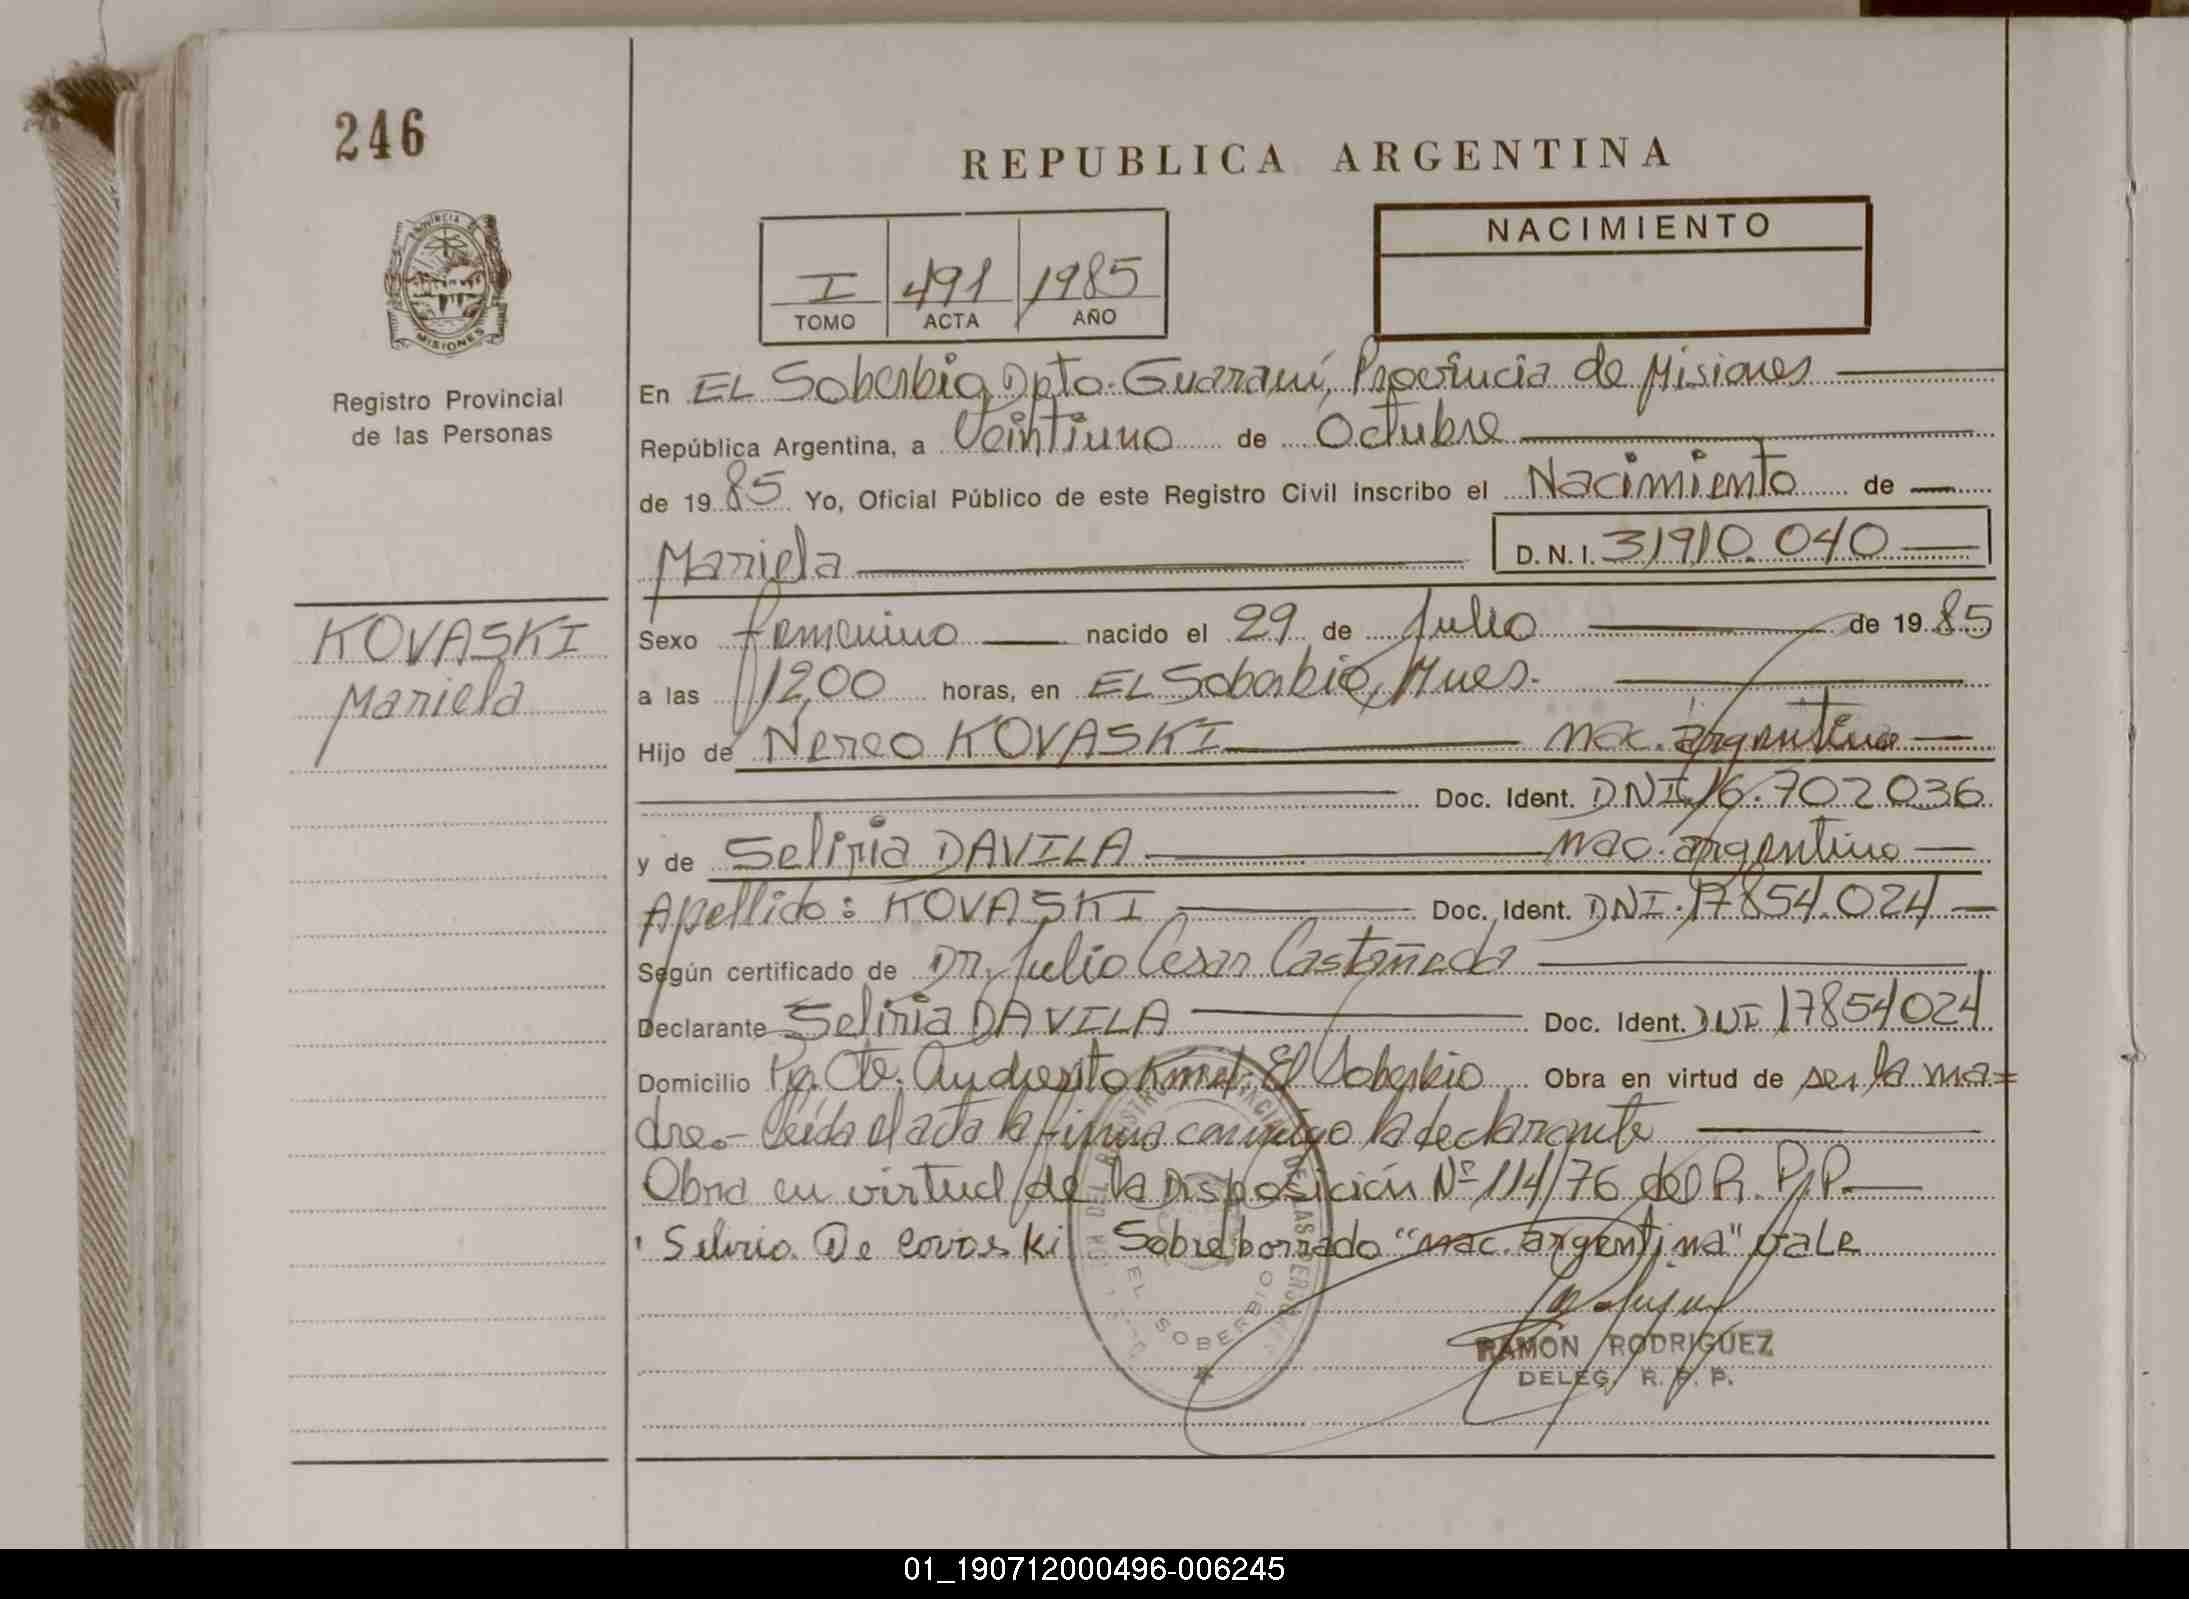 246
REPUBLICA ARGENTINA
PROVINCIA DE
MISIONES
Registro Provincial
de las Personas
I 491 1985
TOMO ACTA AÑO
NACIMIENTO
En EL Soberbio Dpto. Guaraní, Provincia de Misiones
República Argentina, a Veintiuno de Octubre
de 1985 Yo, Oficial Público de este Registro Civil inscribo el Nacimiento de
Mariela D.N.I. 31910.040
KOVASKI
Mariela
Sexo femenino nacido el 29 de Julio de 1985
a las 12,00 horas, en EL Soberbio, Mnes.
Hijo de Nereo KOVASKI nac. argentina
Doc. Ident. DNI. 16.702036
y de Seliria DAVILA nac. argentina
Apellido: KOVASKI Doc. Ident. DNI. 17854.024
Según certificado de Dr. Julio Cesar Castañeda
Declarante Seliria DAVILA Doc. Ident. DNI 17854024
Domicilio El Soberbio Obra en virtud de ser la ma=
dre.- Leída el acta la firma conmigo la declarante
Obra en virtud de la Disposición Nº 114/76 del R. P. P.
Seliria De Covoski Sobre borrado "nac. argentina" vale
EL SOBERBIO
RAMON RODRIGUEZ
DELEG. R. P. P.
01_190712000496-006245